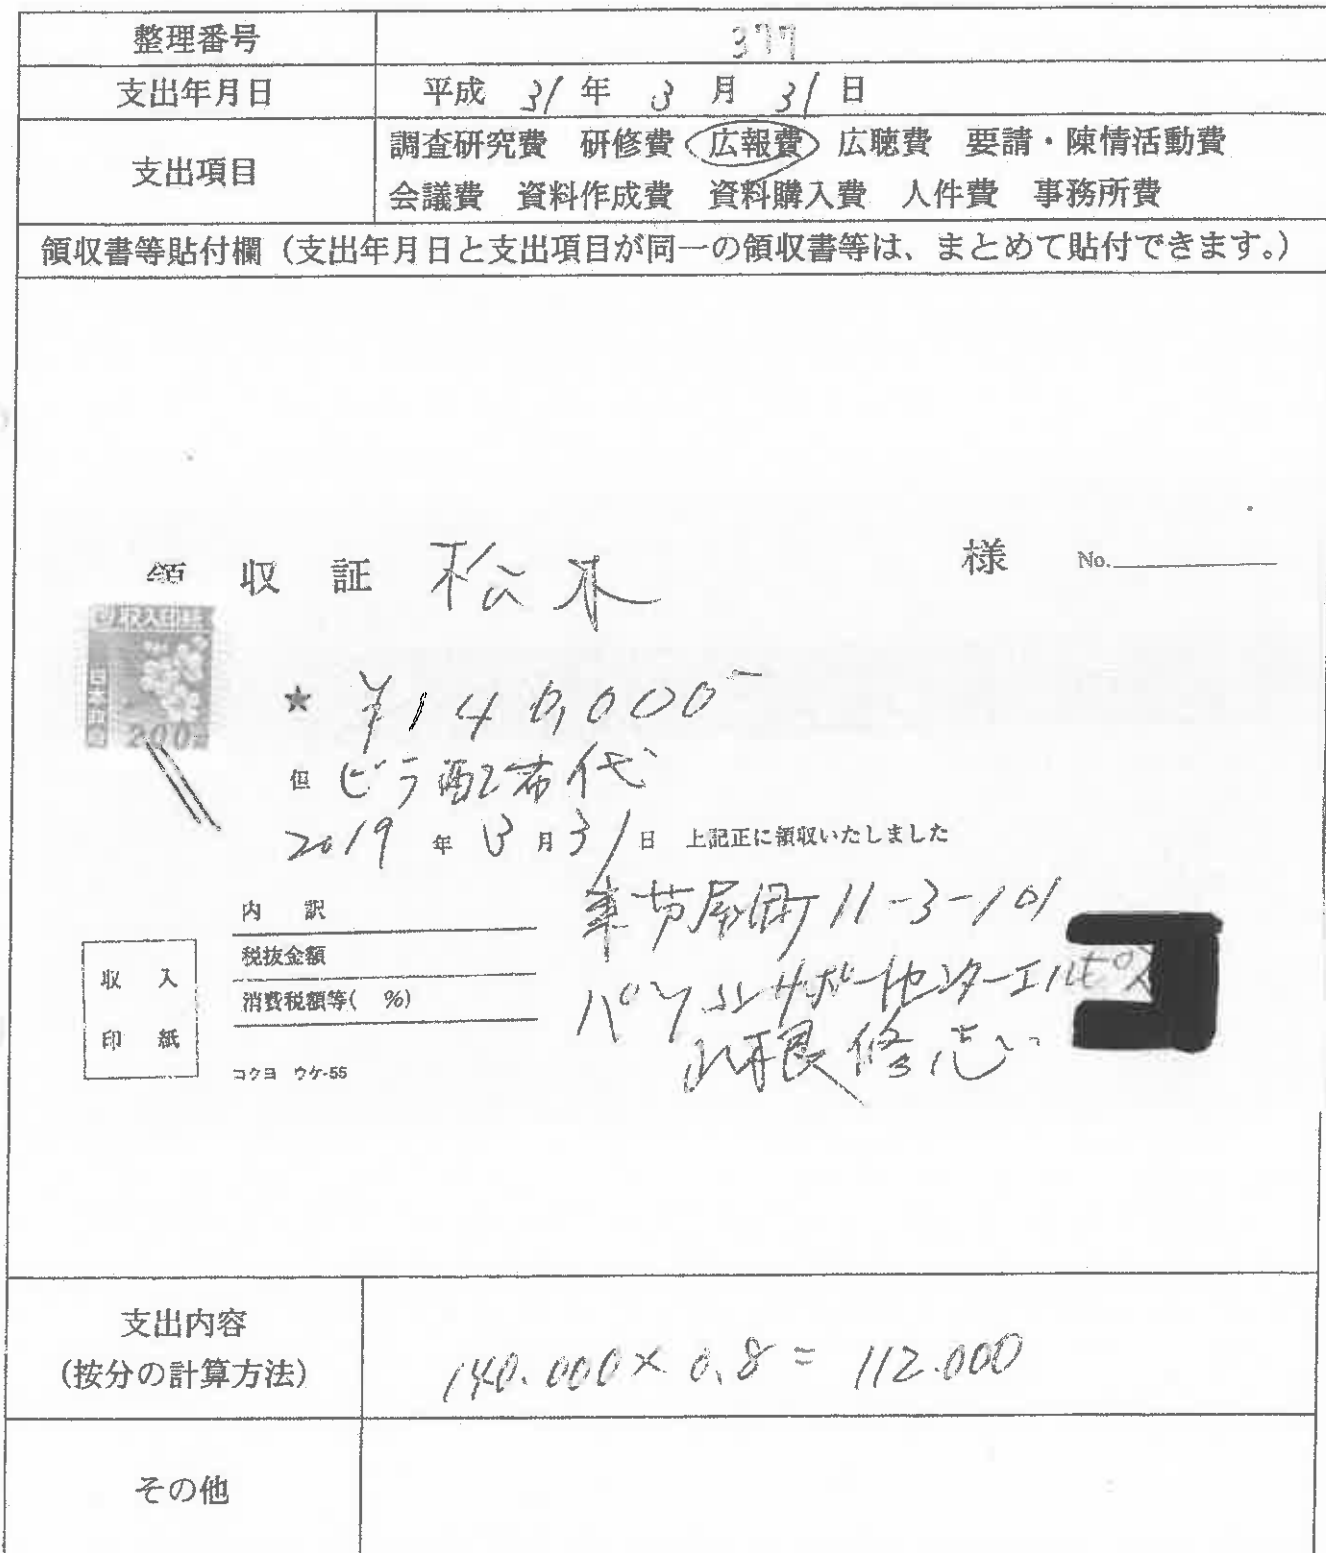 整理番号 377
支出年月日 平成 31 年 3 月 31 日
支出項目 調査研究費 研修費 広報費 広聴費 要請・陳情活動費
会議費 資料作成費 資料購入費 人件費 事務所費
領収書等貼付欄（支出年月日と支出項目が同一の領収書等は、まとめて貼付できます。）
領 収 証 松木 様 No.
収入印紙
日本政府
200円
★ ¥140,000-
但 ビラ配布代
2019 年 3 月 31 日 上記正に領収いたしました
東芦屋町11-3-101
内 訳
税抜金額
パソコンサポートセンターエルピス
消費税額等( %)
収 入
印 紙
山根修志
コクヨ ウケ-55
支出内容
(按分の計算方法) 140.000×0.8=112.000
その他